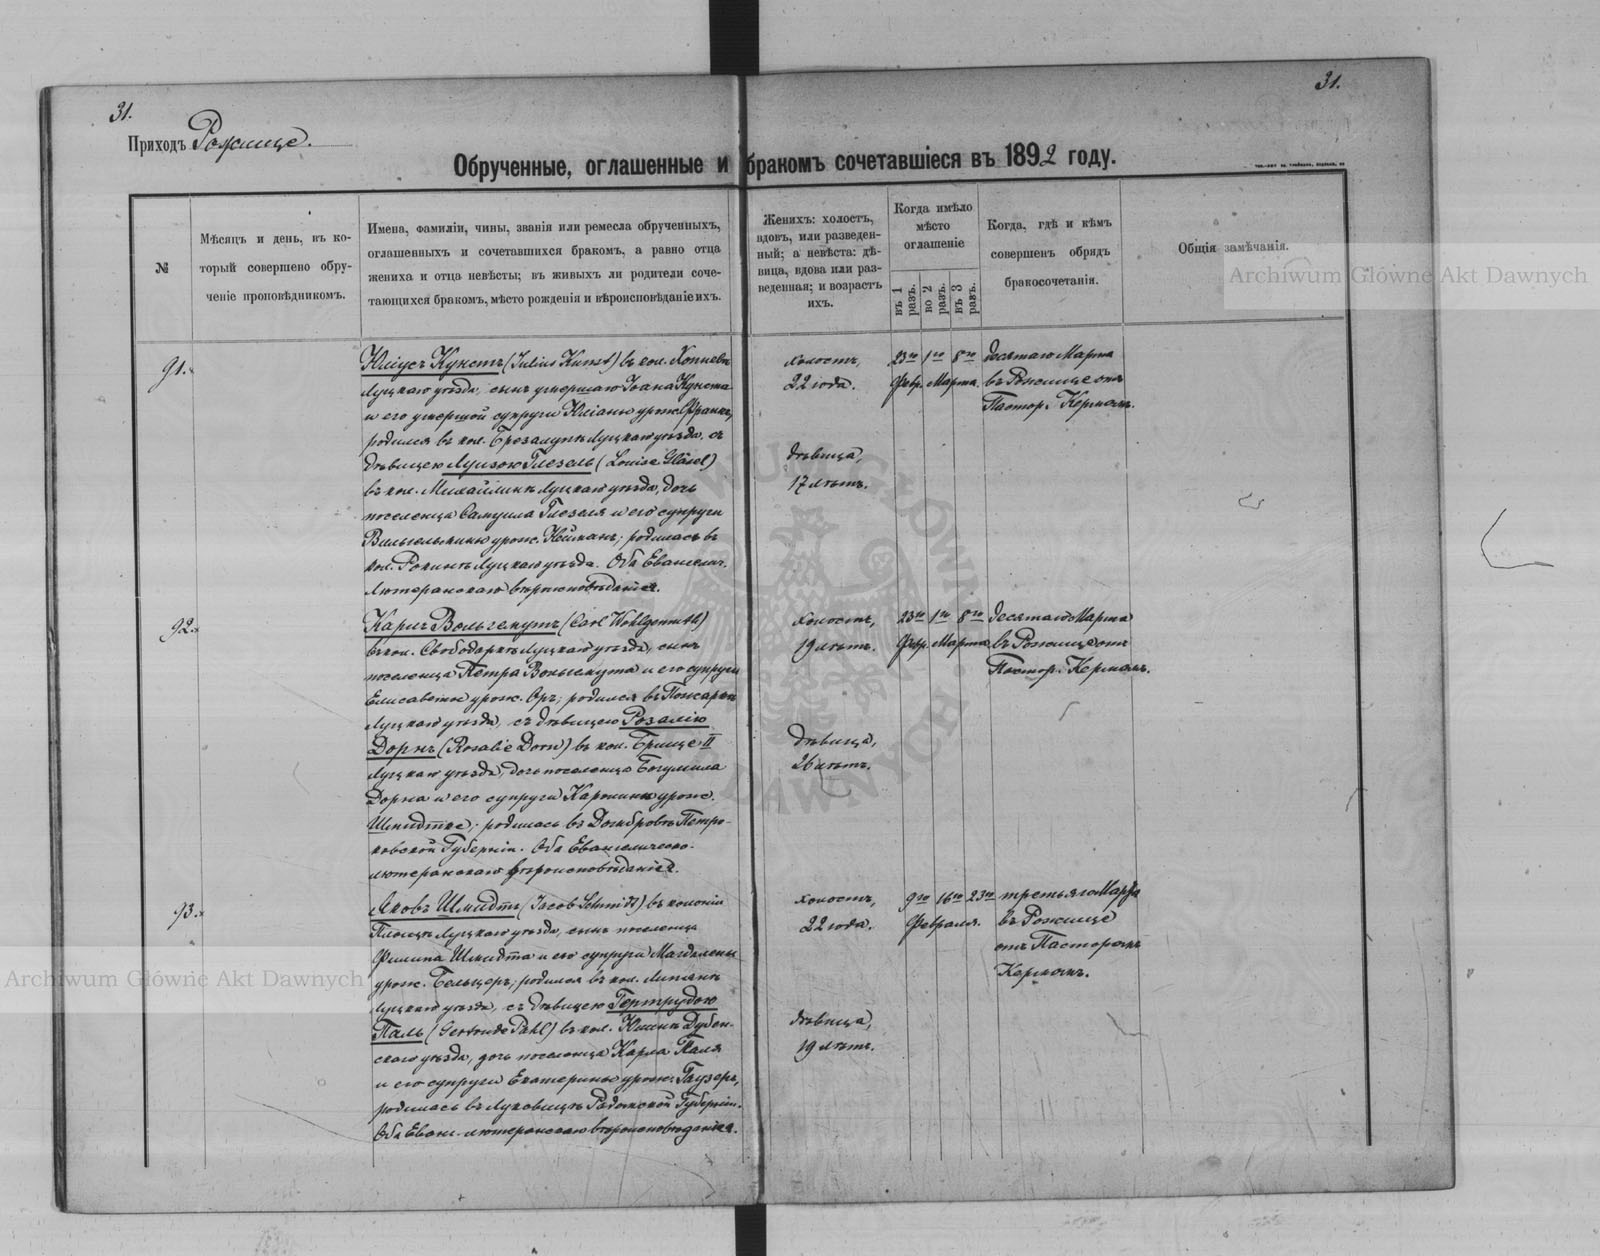 31.
31.
Приходъ Рожище.
Обрученные, оглашенные и бракомъ сочетавшіеся въ 1892 году.
№
Мѣсяцъ и день, въ ко-
торый совершено обру-
ченіе проповѣдникомъ.
Имена, фамиліи, чины, званія или ремесла обрученныхъ,
оглашенныхъ и сочетавшихся бракомъ, а равно отца
жениха и отца невѣсты; въ живыхъ ли родители соче-
тающихся бракомъ, мѣсто рожденія и вѣроисповѣданіе ихъ.
Женихъ: холостъ,
вдовъ, или разведен-
ный; а невѣста: дѣ-
вица, вдова или раз-
веденная; и возрастъ
ихъ.
Когда имѣло
мѣсто
оглашеніе
въ 1 разъ.
во 2 разъ.
въ 3 разъ.
Когда, гдѣ и кѣмъ
совершенъ обрядъ
бракосочетанія.
Общія замѣчанія.
Archiwum Główne Akt Dawnych
91.
Юліусъ Кунстъ (Julius Kunst) въ кол. Копчевка
Луцкаго уѣзда, сынъ умершаго Ивана Кунста
и его умершой супруги Юліаны урож. Франкъ,
родился въ кол. Луцкаго уѣзда, съ
дѣвицею Луизою Глезель (Louise Gläsel)
въ кол. Михайлинъ Луцкаго уѣзда, дочь
поселенца Самуила Глезеля и его супруги
Вильгельмины урож. Нейманъ; родилась въ
кол. Луцкаго уѣзда. Оба Евангелич.
Лютеранскаго вѣроисповѣданія.
холостъ,
22 года.
дѣвица,
17 лѣтъ.
23го 1го 8го
Февр. Марта
десятаго Марта
въ Рожище отъ
Пастор. Керномъ.
92.
Карлъ Вольгемутъ (Carl Wohlgemuth)
въ кол. Свободарка Луцкаго уѣзда, сынъ
поселенца Петра Вольгемута и его супруги
Елисаветы урож. Оръ; родился въ Пожарки
Луцкаго уѣзда, съ дѣвицею Розалію
Дорнъ (Rosalie Dorn) въ кол. Брище II
Луцкаго уѣзда, дочь поселенца Богумила
Дорна и его супруги Каролины урож.
Шмидтке; родилась въ Петро-
ковской Губерніи. Оба Евангелическо-
лютеранскаго вѣроисповѣданія.
холостъ,
19 лѣтъ.
дѣвица,
26 лѣтъ.
23го 1го 8го
Февр. Марта
десятаго Марта
въ Рожище отъ
Пастор. Керномъ.
93.
Яковъ Шмидтъ (Jacob Schmidt) въ колоніи
Луцкаго уѣзда, сынъ поселенца
Филипа Шмидта и его супруги Магдалены
урож. Бельцеръ; родился въ кол.
Луцкаго уѣзда, съ дѣвицею Гертрудою
Паль (Gertrude Pahl) въ кол. Юлинъ Дубен-
скаго уѣзда, дочь поселенца Карла Паля
и его супруги Екатерины урож. Гаузеръ,
родилась въ Радомской Губерніи.
Оба Еванг.-лютеранскаго вѣроисповѣданія.
холостъ,
22 года.
дѣвица,
19 лѣтъ.
9го 16го 23го
Февраля.
третьяго Марта
въ Рожище
отъ Пасторомъ
Керномъ.
Archiwum Główne Akt Dawnych